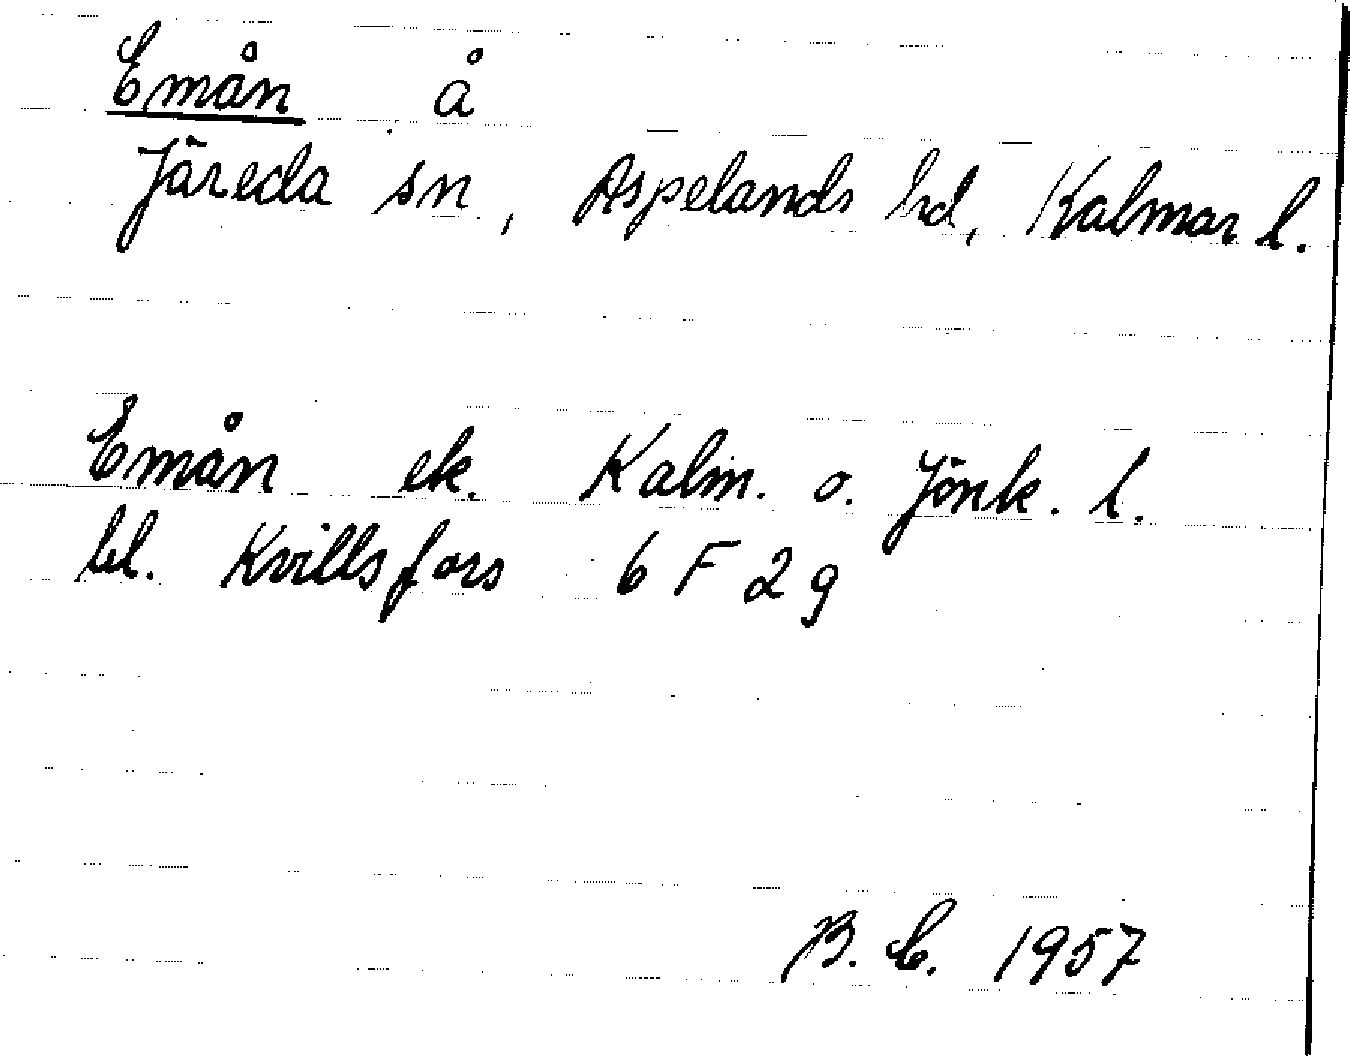 Emån å
Järeda sn, Aspelands hd, Kalmar l.
Emån ek. Kalm. o. Jönk. l.
bl. Kvillsfors 6 F 2 g
B. E. 1957